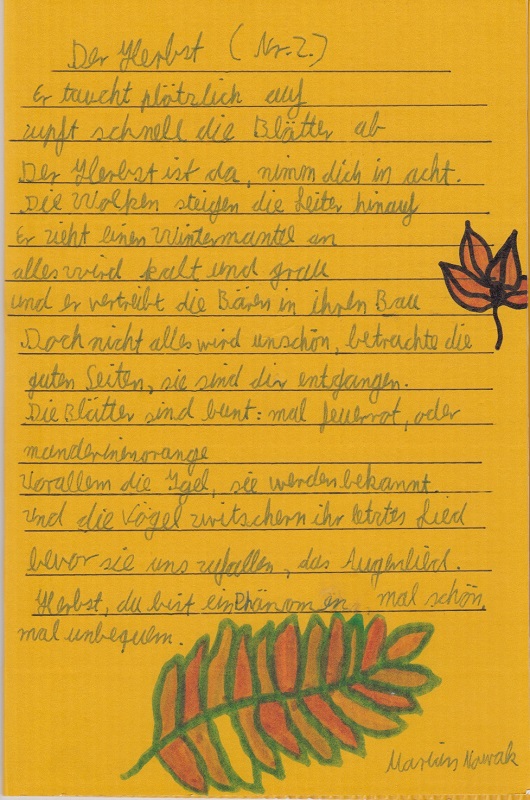 Der Herbst (Nr.2.)
Er taucht plötzlich auf
zupft schnell die Blätter ab
Der Herbst ist da, nimm dich in acht.
Die Wolken steigen die Leiter hinauf
Er zieht einen Wintermantel an
alles wird kalt und grau
und er vertreibt die Bären in ihren Bau
Doch nicht alles wird unschön, betrachte die
guten Seiten, sie sind dir entgangen.
Die Blätter sind bunt: mal feuerrot, oder
manderinenorange
Vorallem die Igel, sie werden bekannt.
Und die Vögel zwitschern ihr letztes Lied
bevor sie uns zufallen, das Augenlied.
Herbst, du bist ein Phänomen, mal schön,
mal unbequem.
Marius Nowak